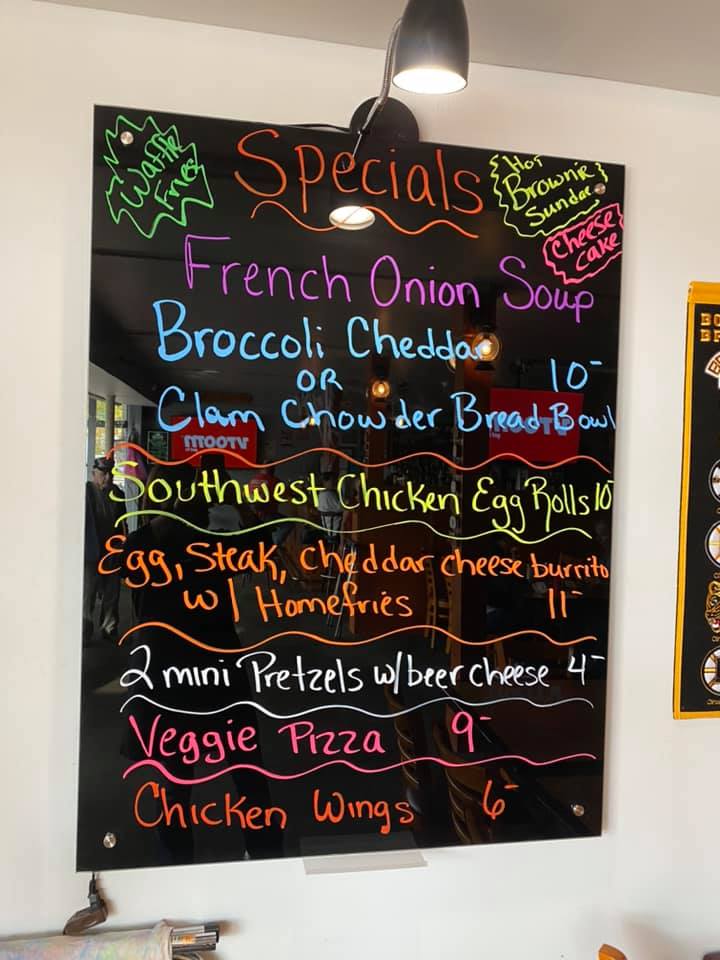 Waffle
Fries
Specials
Hot
Brownie
Sundae
Cheese
cake
French Onion Soup
Broccoli Cheddar
OR 10-
Clam Chowder Bread Bowl
Southwest Chicken Egg Rolls 10
Egg, Steak, cheddar cheese burrito
w/ Homefries 11-
2 mini Pretzels w/beer cheese 4-
Veggie Pizza 9-
Chicken Wings 6-